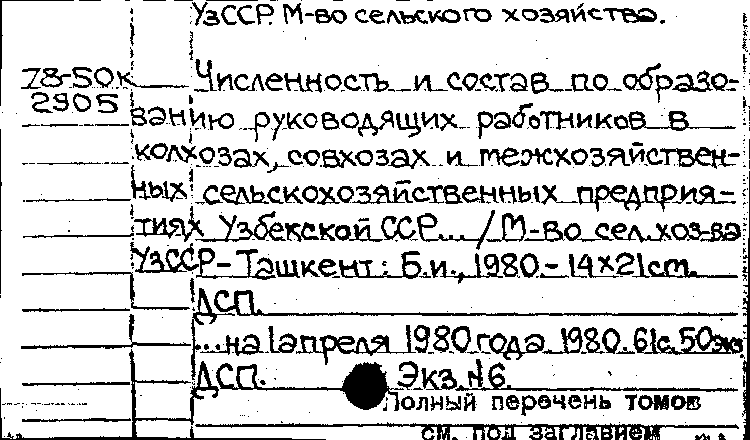 УзССР. М-во сельского хозяйства.
78-50к Численность и состав по образо-
2905
ванию руководящих работников в
колхозах, совхозах и межхозяйствен-
ных сельскохозяйственных предприя-
тиях Узбекской ССР... / М-во сел. хоз-ва
УзССР - Ташкент: Б.и., 1980. - 14×21 cm.
ДСП.
...на 1 апреля 1980 года. 1980. 61с. 50 экз
ДСП. Экз. № 6.
Полный перечень томов
см. под заглавием